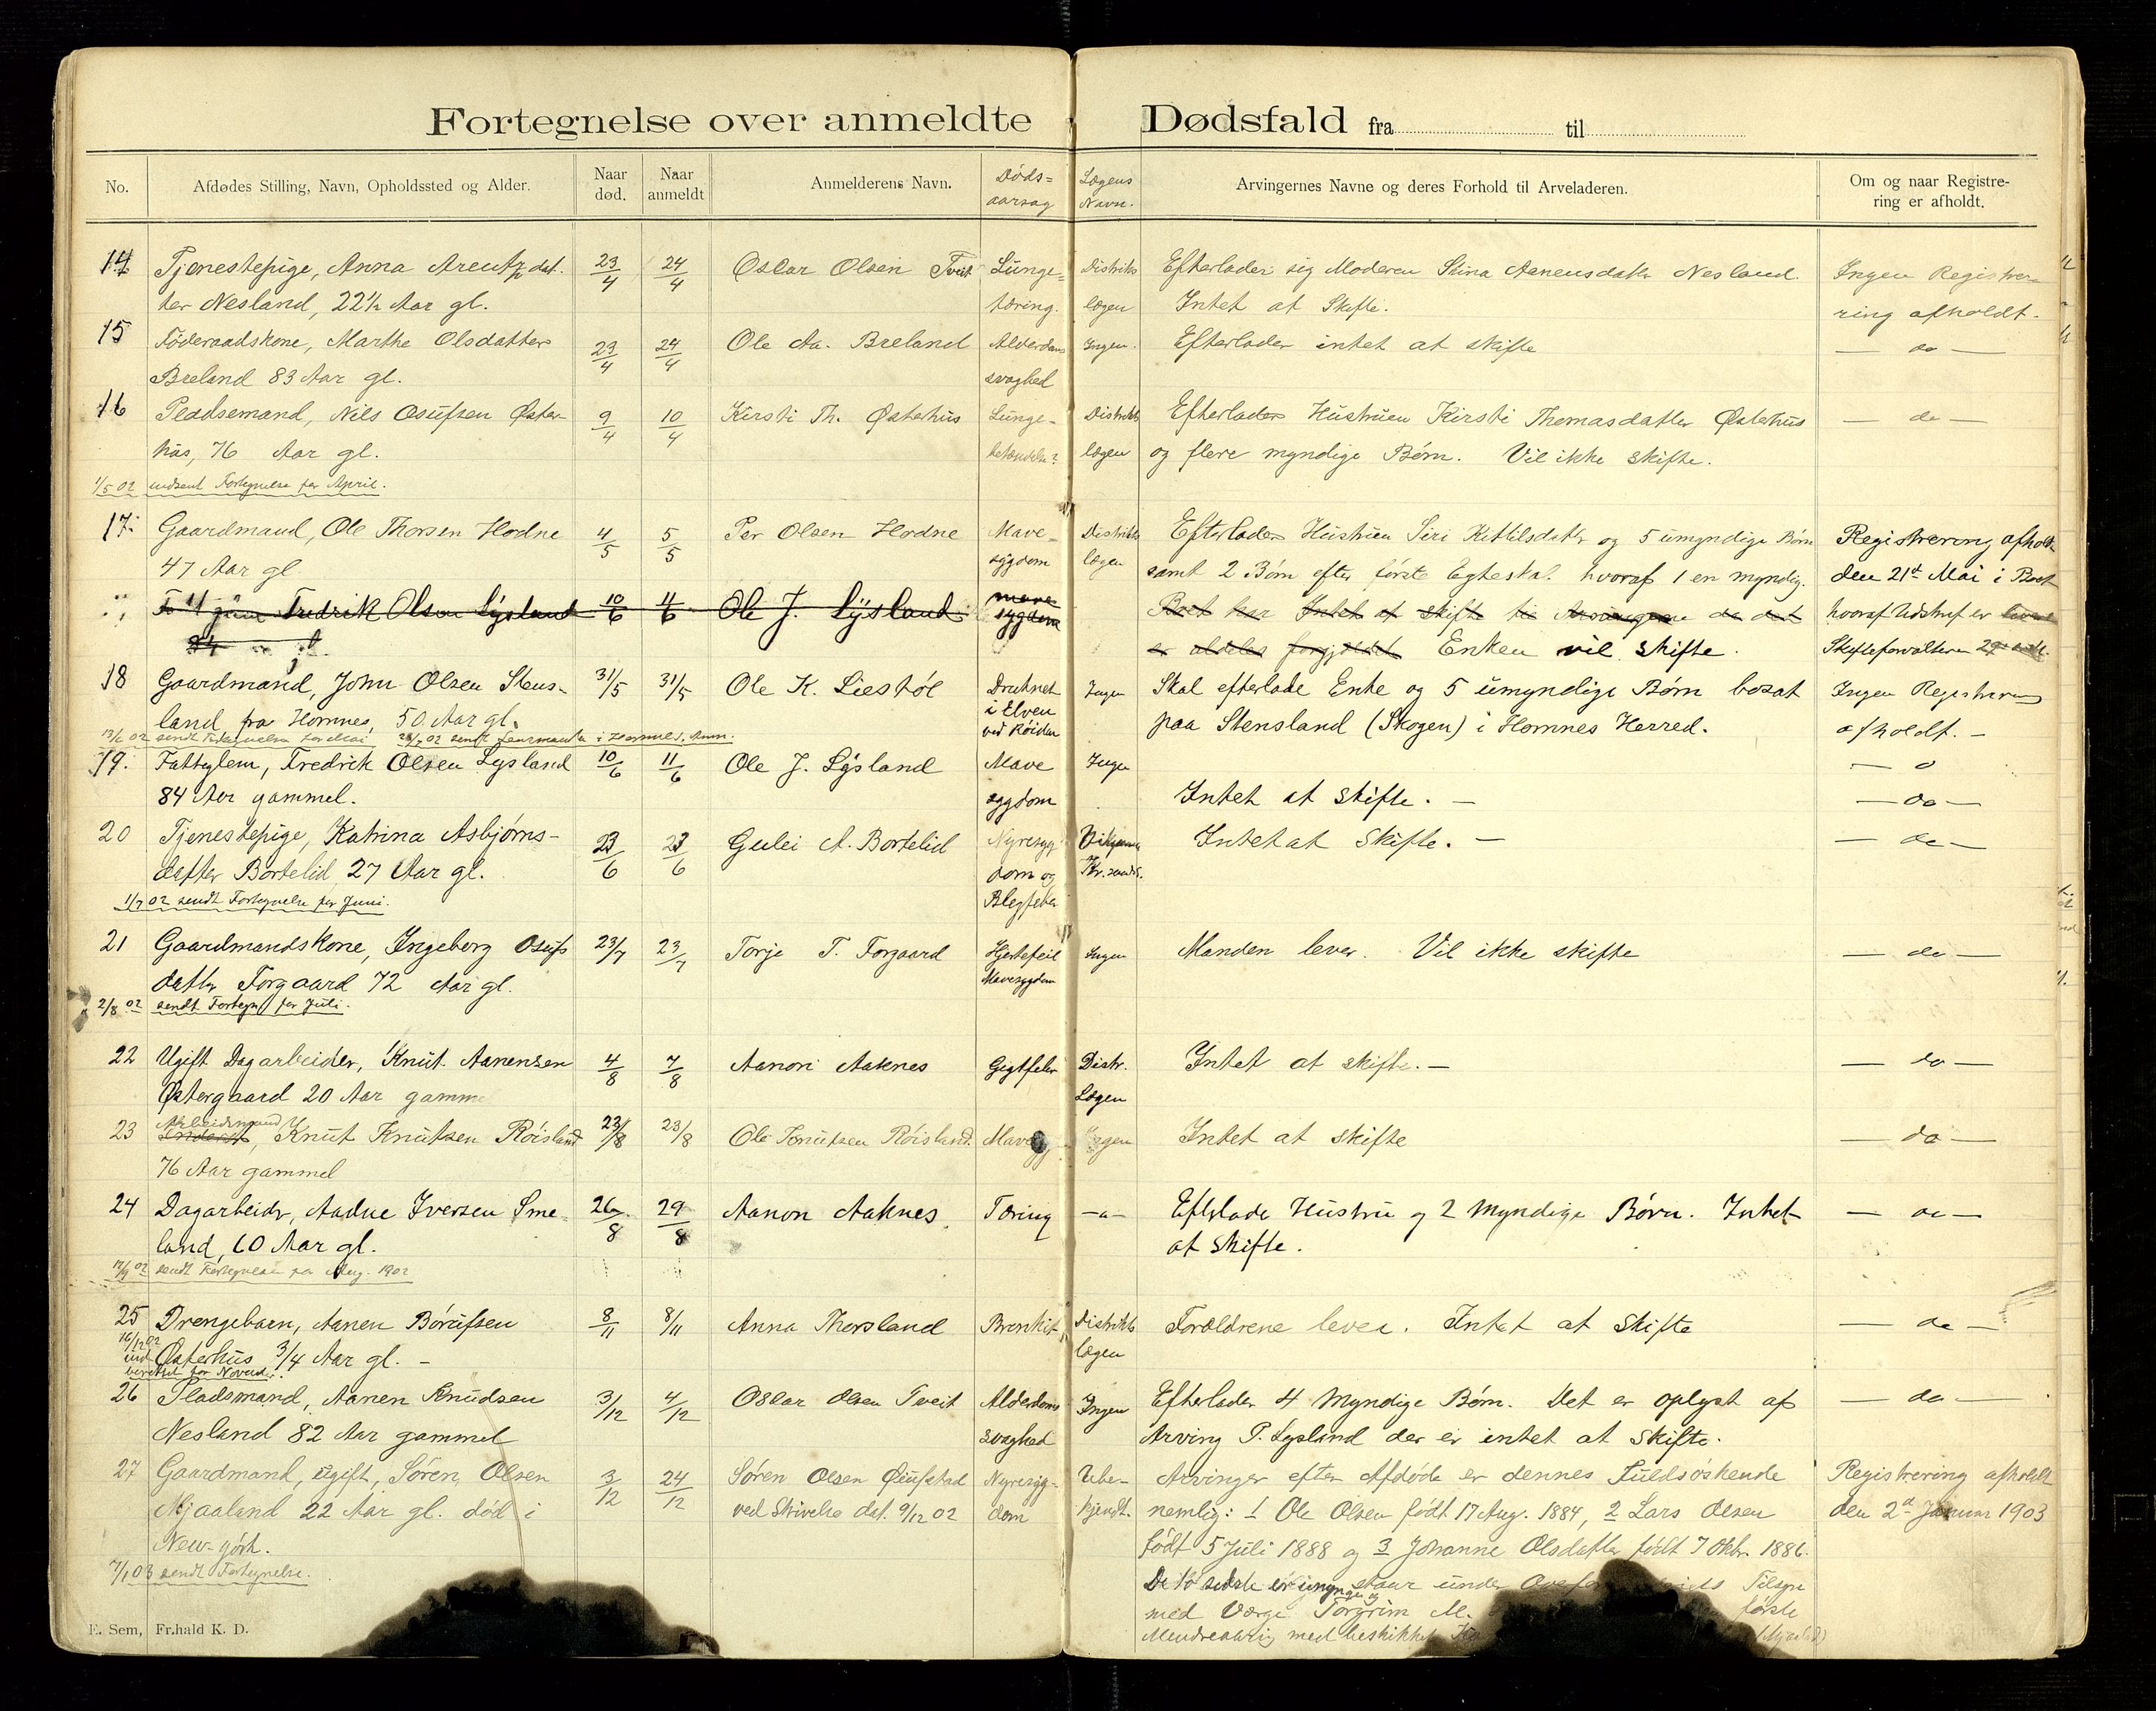 Fortegnelse over anmeldte Dødsfald fra til
No. Afdødes Stilling, Navn, Opholdssted og Alder. Naar død. Naar anmeldt Anmelderens Navn. Døds-aarsag Lægens Navn. Arvingernes Navne og deres Forhold til Arveladeren. Om og naar Registre-ring er afholdt.
14 Tjenestepige, Anna 23/4 24/4 Oscar Olsen Tveit Lunge- Distrikts Efterlader sig Moderen Stina Aanensdatter Nesland. Ingen Registre-
ter Nesland, 22½ Aar gl. tæring. lægen Intet at Skifte. ring afholdt.
15 Føderaadskone, Marthe Olsdatter 23/4 24/4 Ole Aa. Breland Alderdoms Ingen. Efterlader intet at skifte — do —
Breland 83 Aar gl. svaghed
16 Pladsemand, Nils Osufsen Øster- 9/4 10/4 Kirsti Th. Østerhus Lunge- Distrikts Efterlader Hustruen Kirsti Thomasdatter Østerhus — do —
hus, 76 Aar gl. lægen og flere myndige Børn. Vil ikke skifte.
1/5 02 indsent Fortegnelse for April.
17. Gaardmand, Ole Thorsen Hodne 4/5 5/5 Per Olsen Hodne Mave- Distrikts Efterlader Hustruen Siri Kittilsdatter og 5 umyndige Børn Registrering afholdt
47 Aar gl sygdom lægen samt 2 Børn efter første Egteskab hvoraf 1 en myndig. den 21de Mai i Boet
Fredrik Olsen Lysland 10/6 11/6 Ole J. Lysland mave sygdom Boet har Intet at skifte til Arvingerne da det hvoraf Udskrift er
er aldeles forgjeldet Enken vil skifte. Skifteforvalteren
18 Gaardmand, John Olsen Stens- 31/5 31/5 Ole K. Liestøl Druknet Ingen Skal efterlade Enke og 5 umyndige Børn bosat Ingen Registrering
land fra Hornnes, 50 Aar gl. i Elven ved Røiden paa Stensland (Skogen) i Hornnes Herred. afholdt. -
13/6 02 sendt Fortegnelse for Mai
19. Fattiglem, Fredrik Olsen Lysland 10/6 11/6 Ole J. Lysland Mave Ingen
84 Aar gammel. sygdom Intet at skifte. - — do —
20 Tjenestepige, Katrina Asbjørns- 23/6 23/6 Gulei A. Bortelid Nyresyg Intet at skifte. - — do —
datter Bortelid, 27 Aar gl. dom og
1/7 02 sendt Fortegnelse for Juni.
21 Gaardmandskone, Ingeborg Osufs 23/7 23/7 Torje T. Forgaard Hjertefeil Ingen Manden lever. Vil ikke skifte — do —
datter Forgaard 72 Aar gl. Mavesygdom
2/8 02 sendt Fortegn for Juli.
22 Ugift Dagarbeider, Knut Aanensen 4/8 7/8 Aanon Aaknes Gigtfeber Distr. Intet at skifte. — — do —
Østergaard 20 Aar gammel Lægen
23 Arbeidsmand Knut Knutsen Røisland 23/8 23/8 Ole Knutsen Røisland. Ingen Intet at skifte — do —
76 Aar gammel
24 Dagarbeider, Aadne Iversen Sme- 26/8 29/8 Aanon Aaknes. Tæring —"— Efterlade Hustru og 2 Myndige Børn. Intet — do —
land, 60 Aar gl. at skifte.
sendt Fortegnelse for Aug. 1902
25 Drengebarn, Aanen Børufsen 8/11 8/11 Anna Thorsland Bronkit Distrikts Forældrene lever. Intet at skifte — do —
16/12 02 ind Østerhus 3/4 Aar gl. - lægen
berettet for Novemb.
26 Pladsmand, Aanen Knudsen 3/12 4/12 Oscar Olsen Tveit Alderdoms Ingen Efterlader 4 Myndige Børn. Det er oplyst af — do —
Nesland 82 Aar gammel svaghed Arving P. Lysland der er intet at skifte.
27 Gaardmand, ugift, Søren Olsen 3/12 24/12 Søren Olsen Nyresyg- Ube- Arvinger efter Afdøde er dennes Fuldsøskende Registrering afholdt
Mjaaland 22 Aar gl. død i ved Skrivelse dat. 9/12 02 dom kjendt. nemlig: 1 Ole Olsen født 17 Aug. 1884, 2 Lars Olsen den 2d Januar 1903
New-york. født 5 Juli 1888 og 3 Johanne Olsdatter født 7 Oktbr. 1886.
7/1 03 sendt Fortegnelse. De to sidste er staar under Tilsyn
med Værge Torgrim M. første
Mindreaarig med beskikket
E. Sem, Fr.hald K. D.